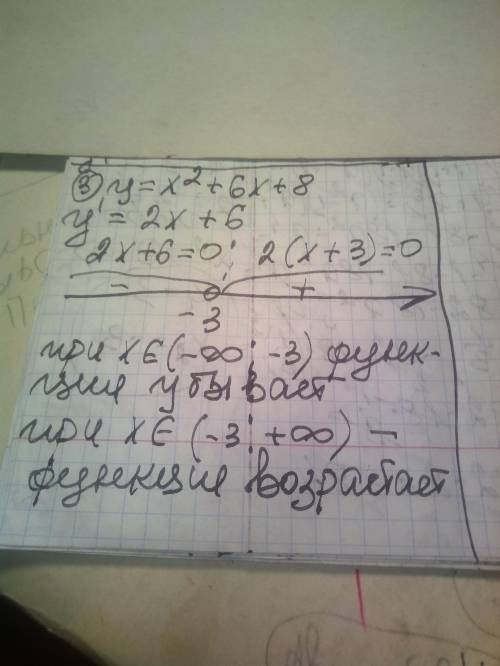 ③ y = x² + 6x + 8
y' = 2x + 6
2x + 6 = 0; 2(x + 3) = 0
- +
-3
при x ∈ (-∞; -3) функ-
ция убывает
при x ∈ (-3; +∞) -
функция возрастает